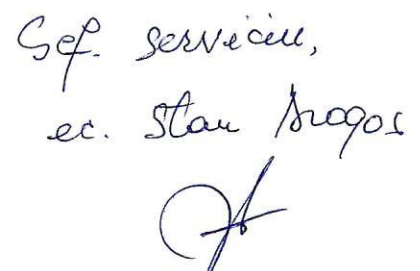 Șef. serviciu,
ec. Stan Dragoș